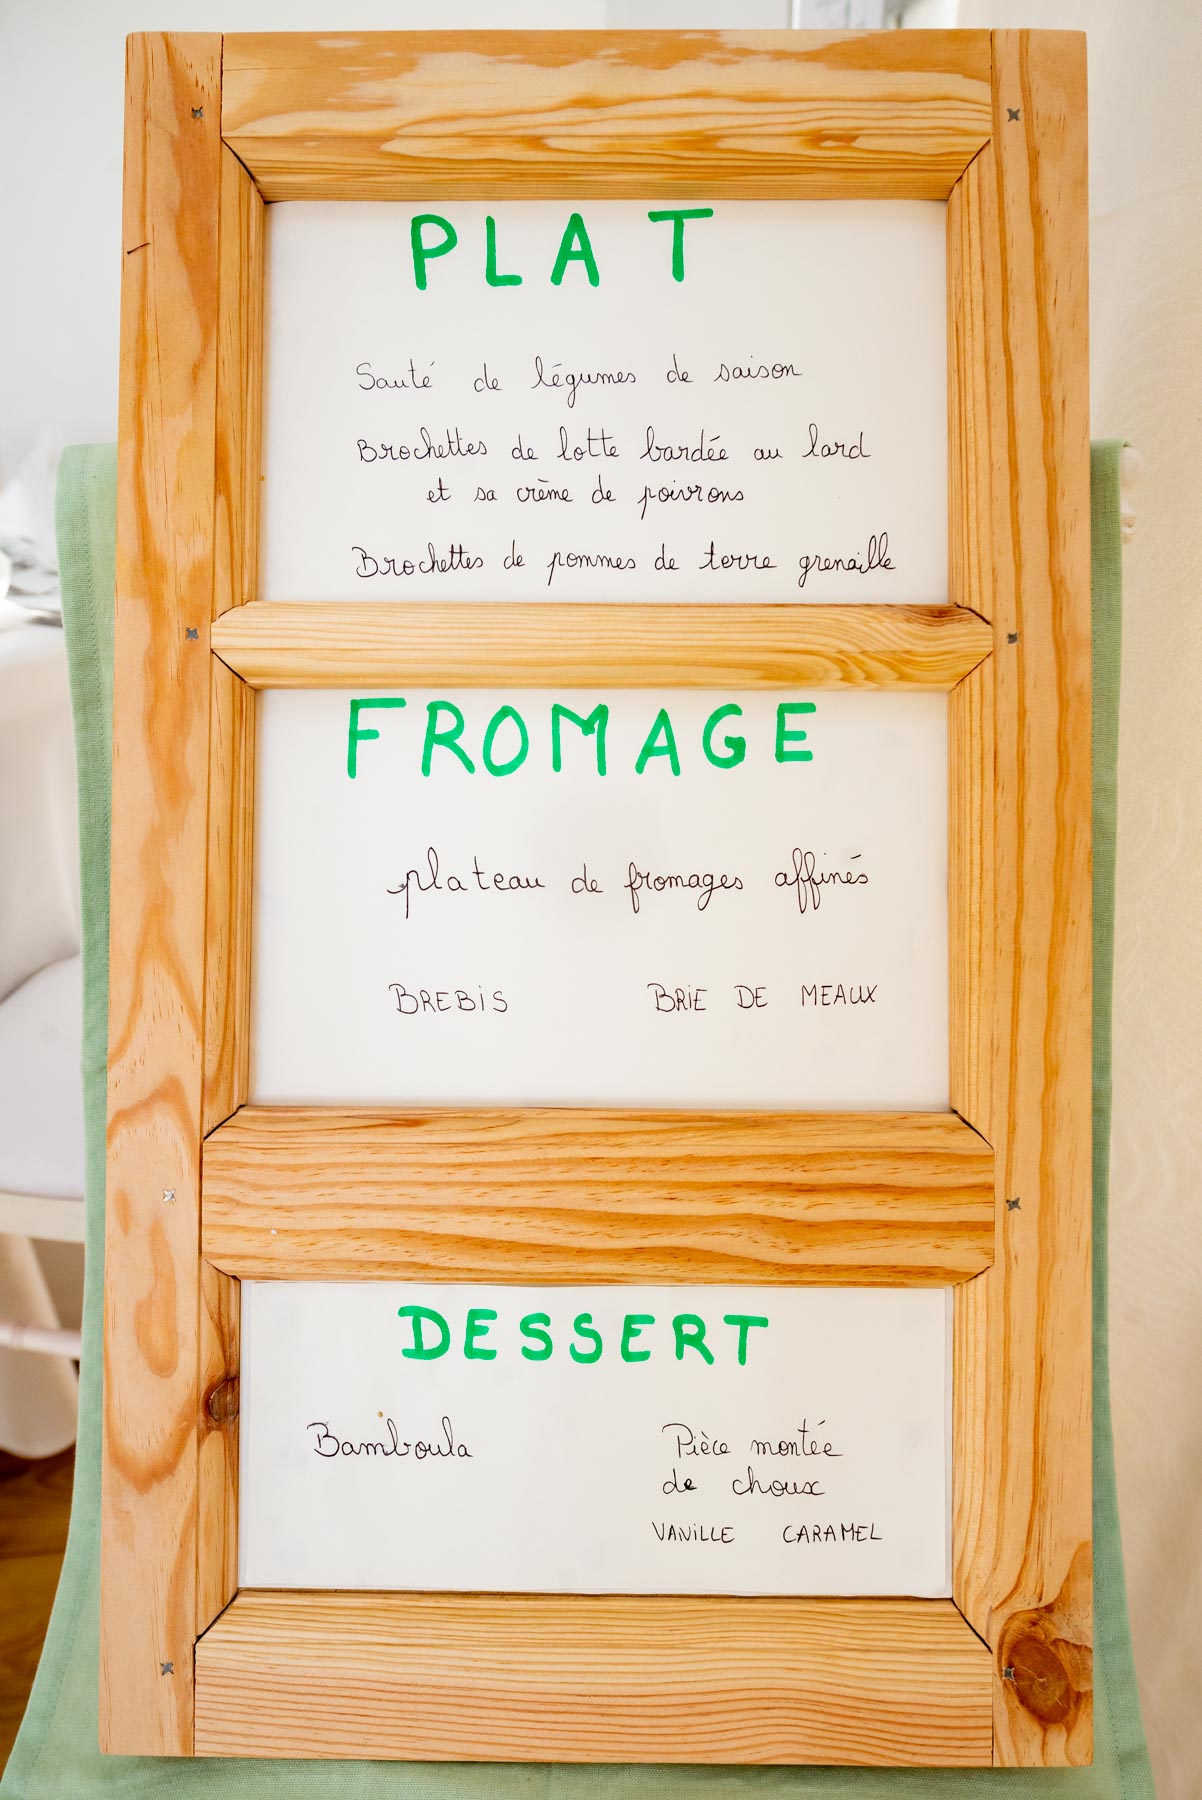 PLAT
Sauté de légumes de saison
Brochettes de lotte bardée au lard
et sa crème de poivrons
Brochettes de pommes de terre grenaille
FROMAGE
plateau de fromages affinés
BREBIS BRIE DE MEAUX
DESSERT
Bamboula
Pièce montée
de choux
VANILLE CARAMEL